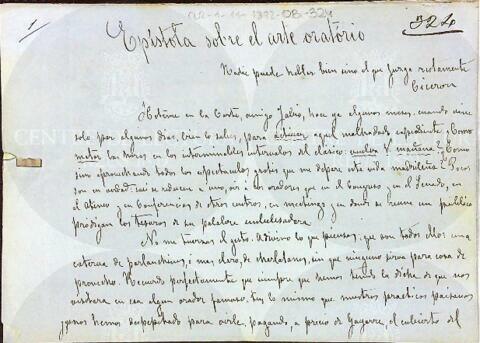 1
324
Epístola sobre el arte oratorio
Nadie puede hablar bien sino el que juzga rectamente
Ciceron
en la Corte, amigo Julio, hace ya algunos meses, cuando vine
solo por algunos días, bien lo sabes, para activar aquel malhadado expediente. ¿Como
matar las horas en los interminables intervalos del clásico: vuelva V. mañana? Como
sin aprovechando todos los espectaculos gratis que me depara esta vida madrileña. Pocos
son en verdad: casi se reducen a uno, oir á los oradores que en el Congreso y el Senado, en
el Ateneo y en Conferencias de otros centros, en meetings y en donde se reune un público
prodigan los tesoros de su palabra embelesadora.
No me tuerzas el gesto. Adivino lo que piensas: que son todos ellos una
caterva de parlanchines, ó mas claro, de charlatanes, sin que ninguno sirva para cosa de
provecho. Recuerdo perfectamente que siempre que hemos tenido la dicha de que nos
visitara en esa algun orador famoso, tu, lo mismo que nuestros practicos paisanos
hemos despepitado para oirle, pagando, a precio de Gayarre, el cubierto del